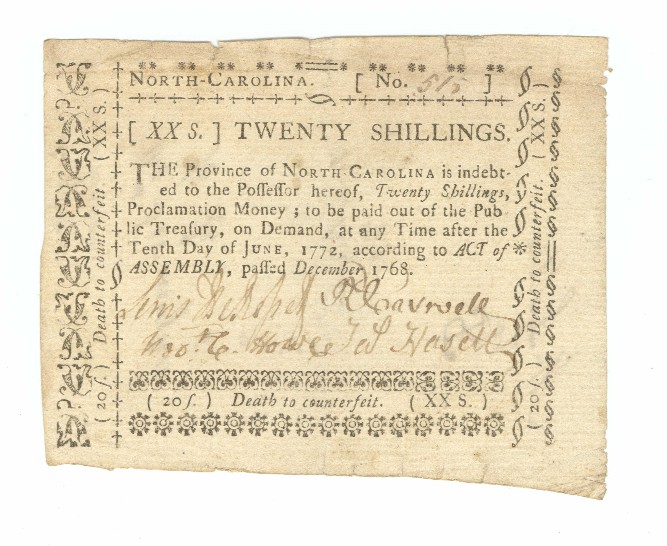 NORTH-CAROLINA. [ No. 515 ]
[ XX S. ] TWENTY SHILLINGS.
THE Province of NORTH CAROLINA is indebt-
ed to the Poſſeſſor hereof, Twenty Shillings,
Proclamation Money ; to be paid out of the Pub
lic Treaſury, on Demand, at any Time after the
Tenth Day of JUNE, 1772, according to ACT of
ASSEMBLY, paſſed December 1768.
Lewis DeRosset R Caswell
Robt. Howe Ja Hasell
( 20ſ. ) Death to counterfeit. ( XX S. )
( 20ſ. ) Death to counterfeit. ( XX S. )
( 20ſ. ) Death to counterfeit. ( XX S. )